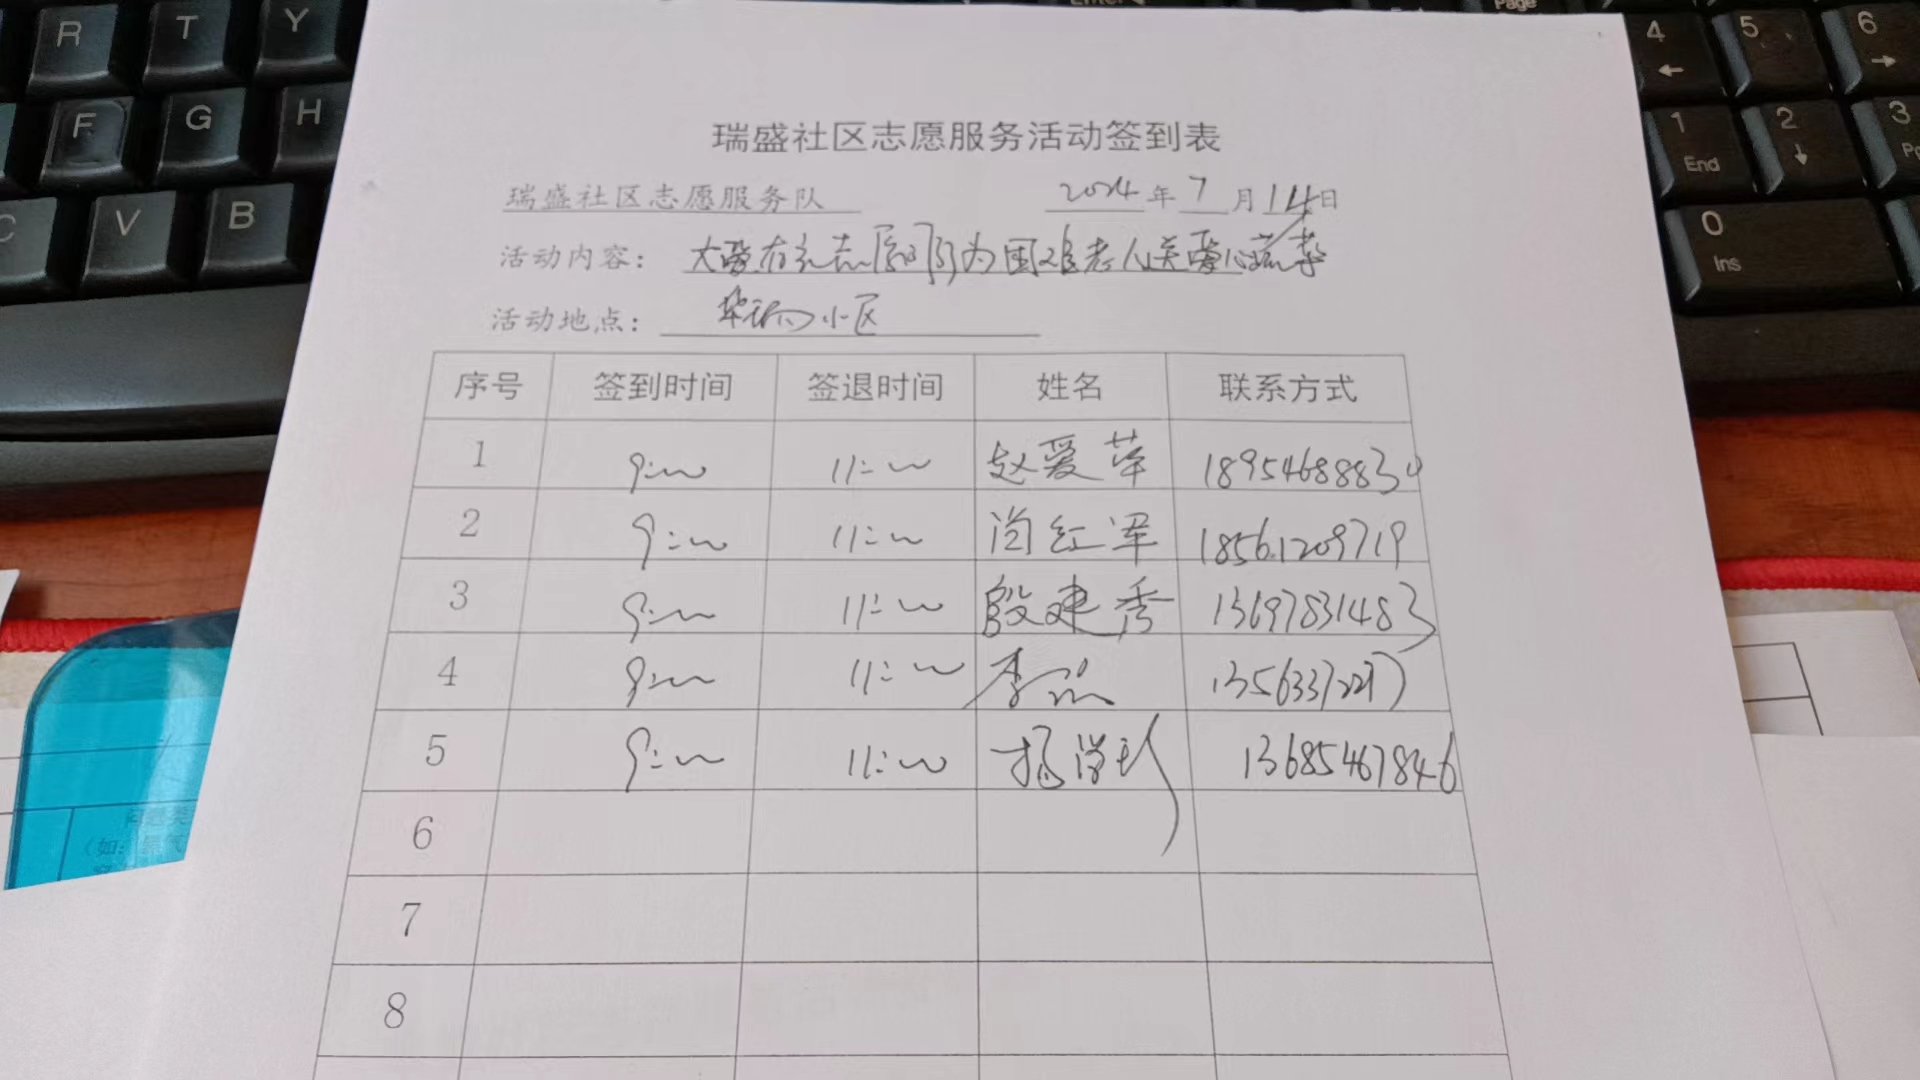 R T Y
F G H
C V B
Enter
Page
4 5 6
1 End 2 3
0 Ins
瑞盛社区志愿服务活动签到表
瑞盛社区志愿服务队 2024年7月14日
活动内容: 大爱有 志愿服 为困难老人送爱心蔬菜
活动地点: 小区
序号 签到时间 签退时间 姓名 联系方式
1 9:00 11:00 赵爱萍 18954688830
2 9:00 11:00 闫红军 18561209719
3 9:00 11:00 殷建秀 13697831483
4 9:00 11:00 李
5 9:00 11:00 杨 13685467846
6
7
8